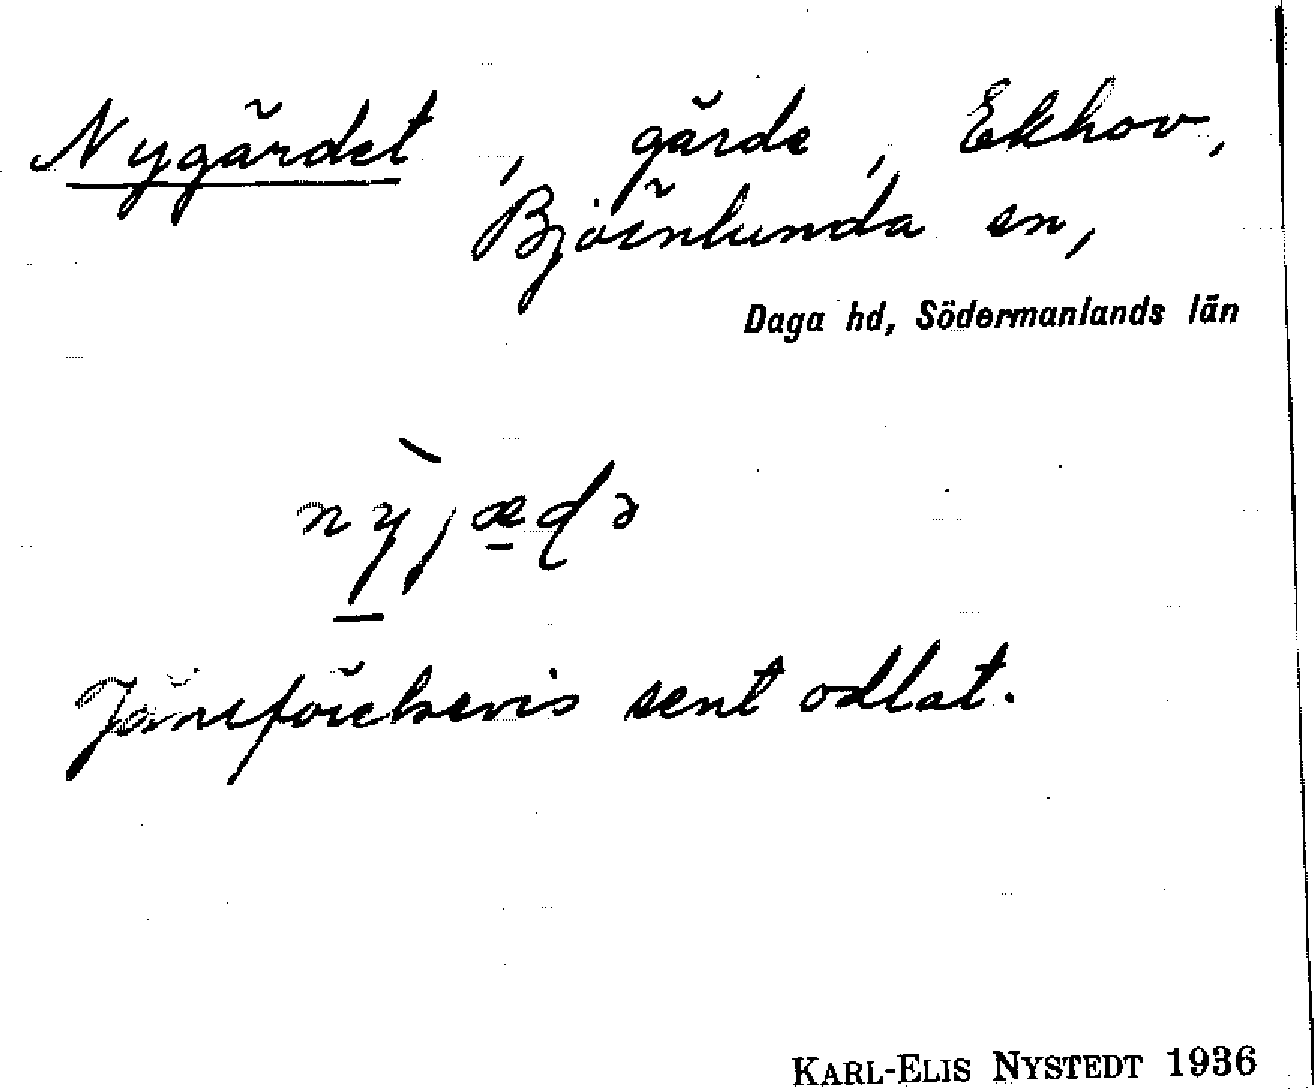 Nygärdet, gärde, Ekhov,
Björnlunda sn,
Daga hd, Södermanlands län
nỳjædə
Jämförelsevis sent odlat.
KARL-ELIS NYSTEDT 1936